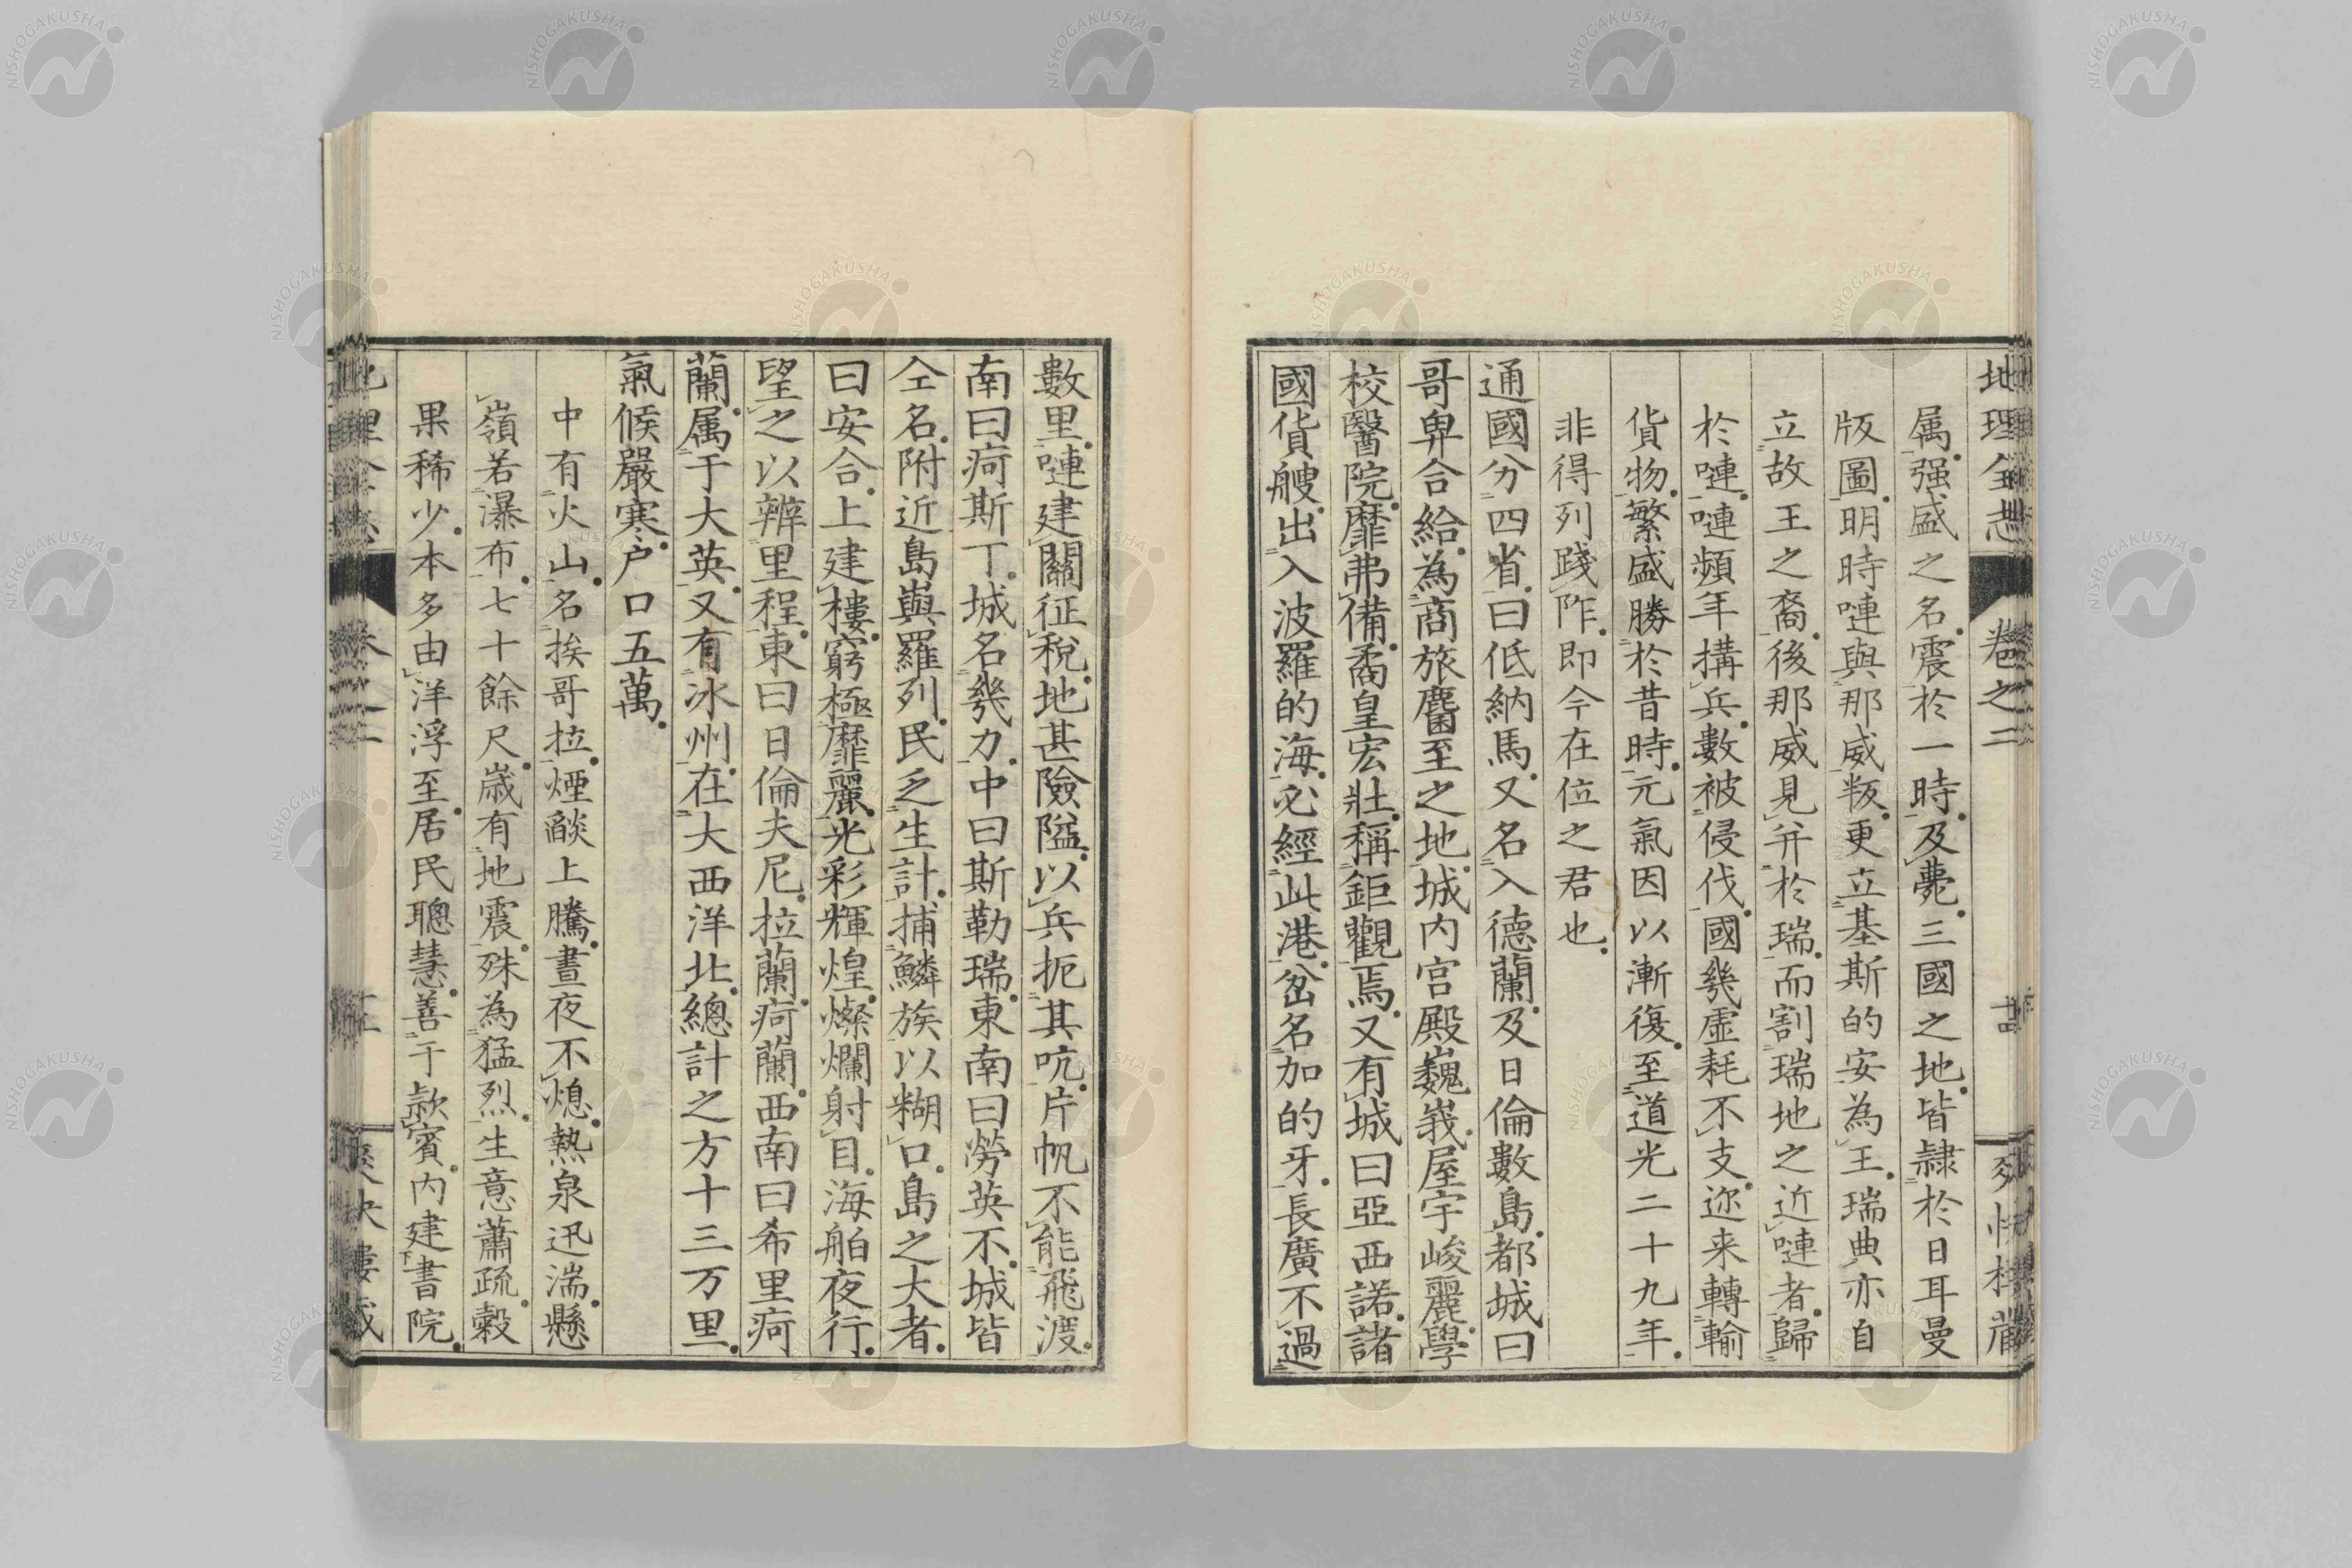 地理全志 卷之二 十四 爽快樓藏
属强盛之名震於一時及薨三國之地皆隸於日耳曼
版圖明時嗹與那威叛更立基斯的安為王瑞典亦自
立故王之裔後那威見并於瑞而割瑞地之近嗹者歸
於嗹嗹頻年搆兵數被侵伐國幾虛耗不支迩来轉輸
貨物繁盛勝於昔時元氣因以漸復至道光二十九年
非得列踐阼即今在位之君也
通國分四省曰低納馬又名入德蘭及日倫數島都城曰
哥卑合給為商旅麕至之地城内宫殿巍峩屋宇峻麗學
校醫院靡弗備矞皇宏壯稱鉅觀焉又有城曰亞西諾諸
國貨艘出入波羅的海必經此港岔名加的牙長廣不過
數里嗹建關征稅地甚險隘以兵扼其吭片帆不能飛渡
南曰疴斯丁城名幾力中曰斯勒瑞東南曰勞英不城皆
仝名附近島嶼羅列民乏生計捕鱗族以糊口島之大者
曰安合上建樓窮極靡麗光彩輝煌燦爛射目海舶夜行
望之以辨里程東曰日倫夫尼拉蘭疴蘭西南曰希里疴
蘭属于大英又有冰州在大西洋北總計之方十三万里
氣候嚴寒户口五萬
中有火山名挨哥拉煙燄上騰晝夜不熄熱泉迅湍懸
嶺若瀑布七十餘尺歳有地震殊為猛烈生意蕭疏榖
果稀少木多由洋浮至居民聰慧善于款賓内建書院
地理全志 卷之二 爽快樓藏